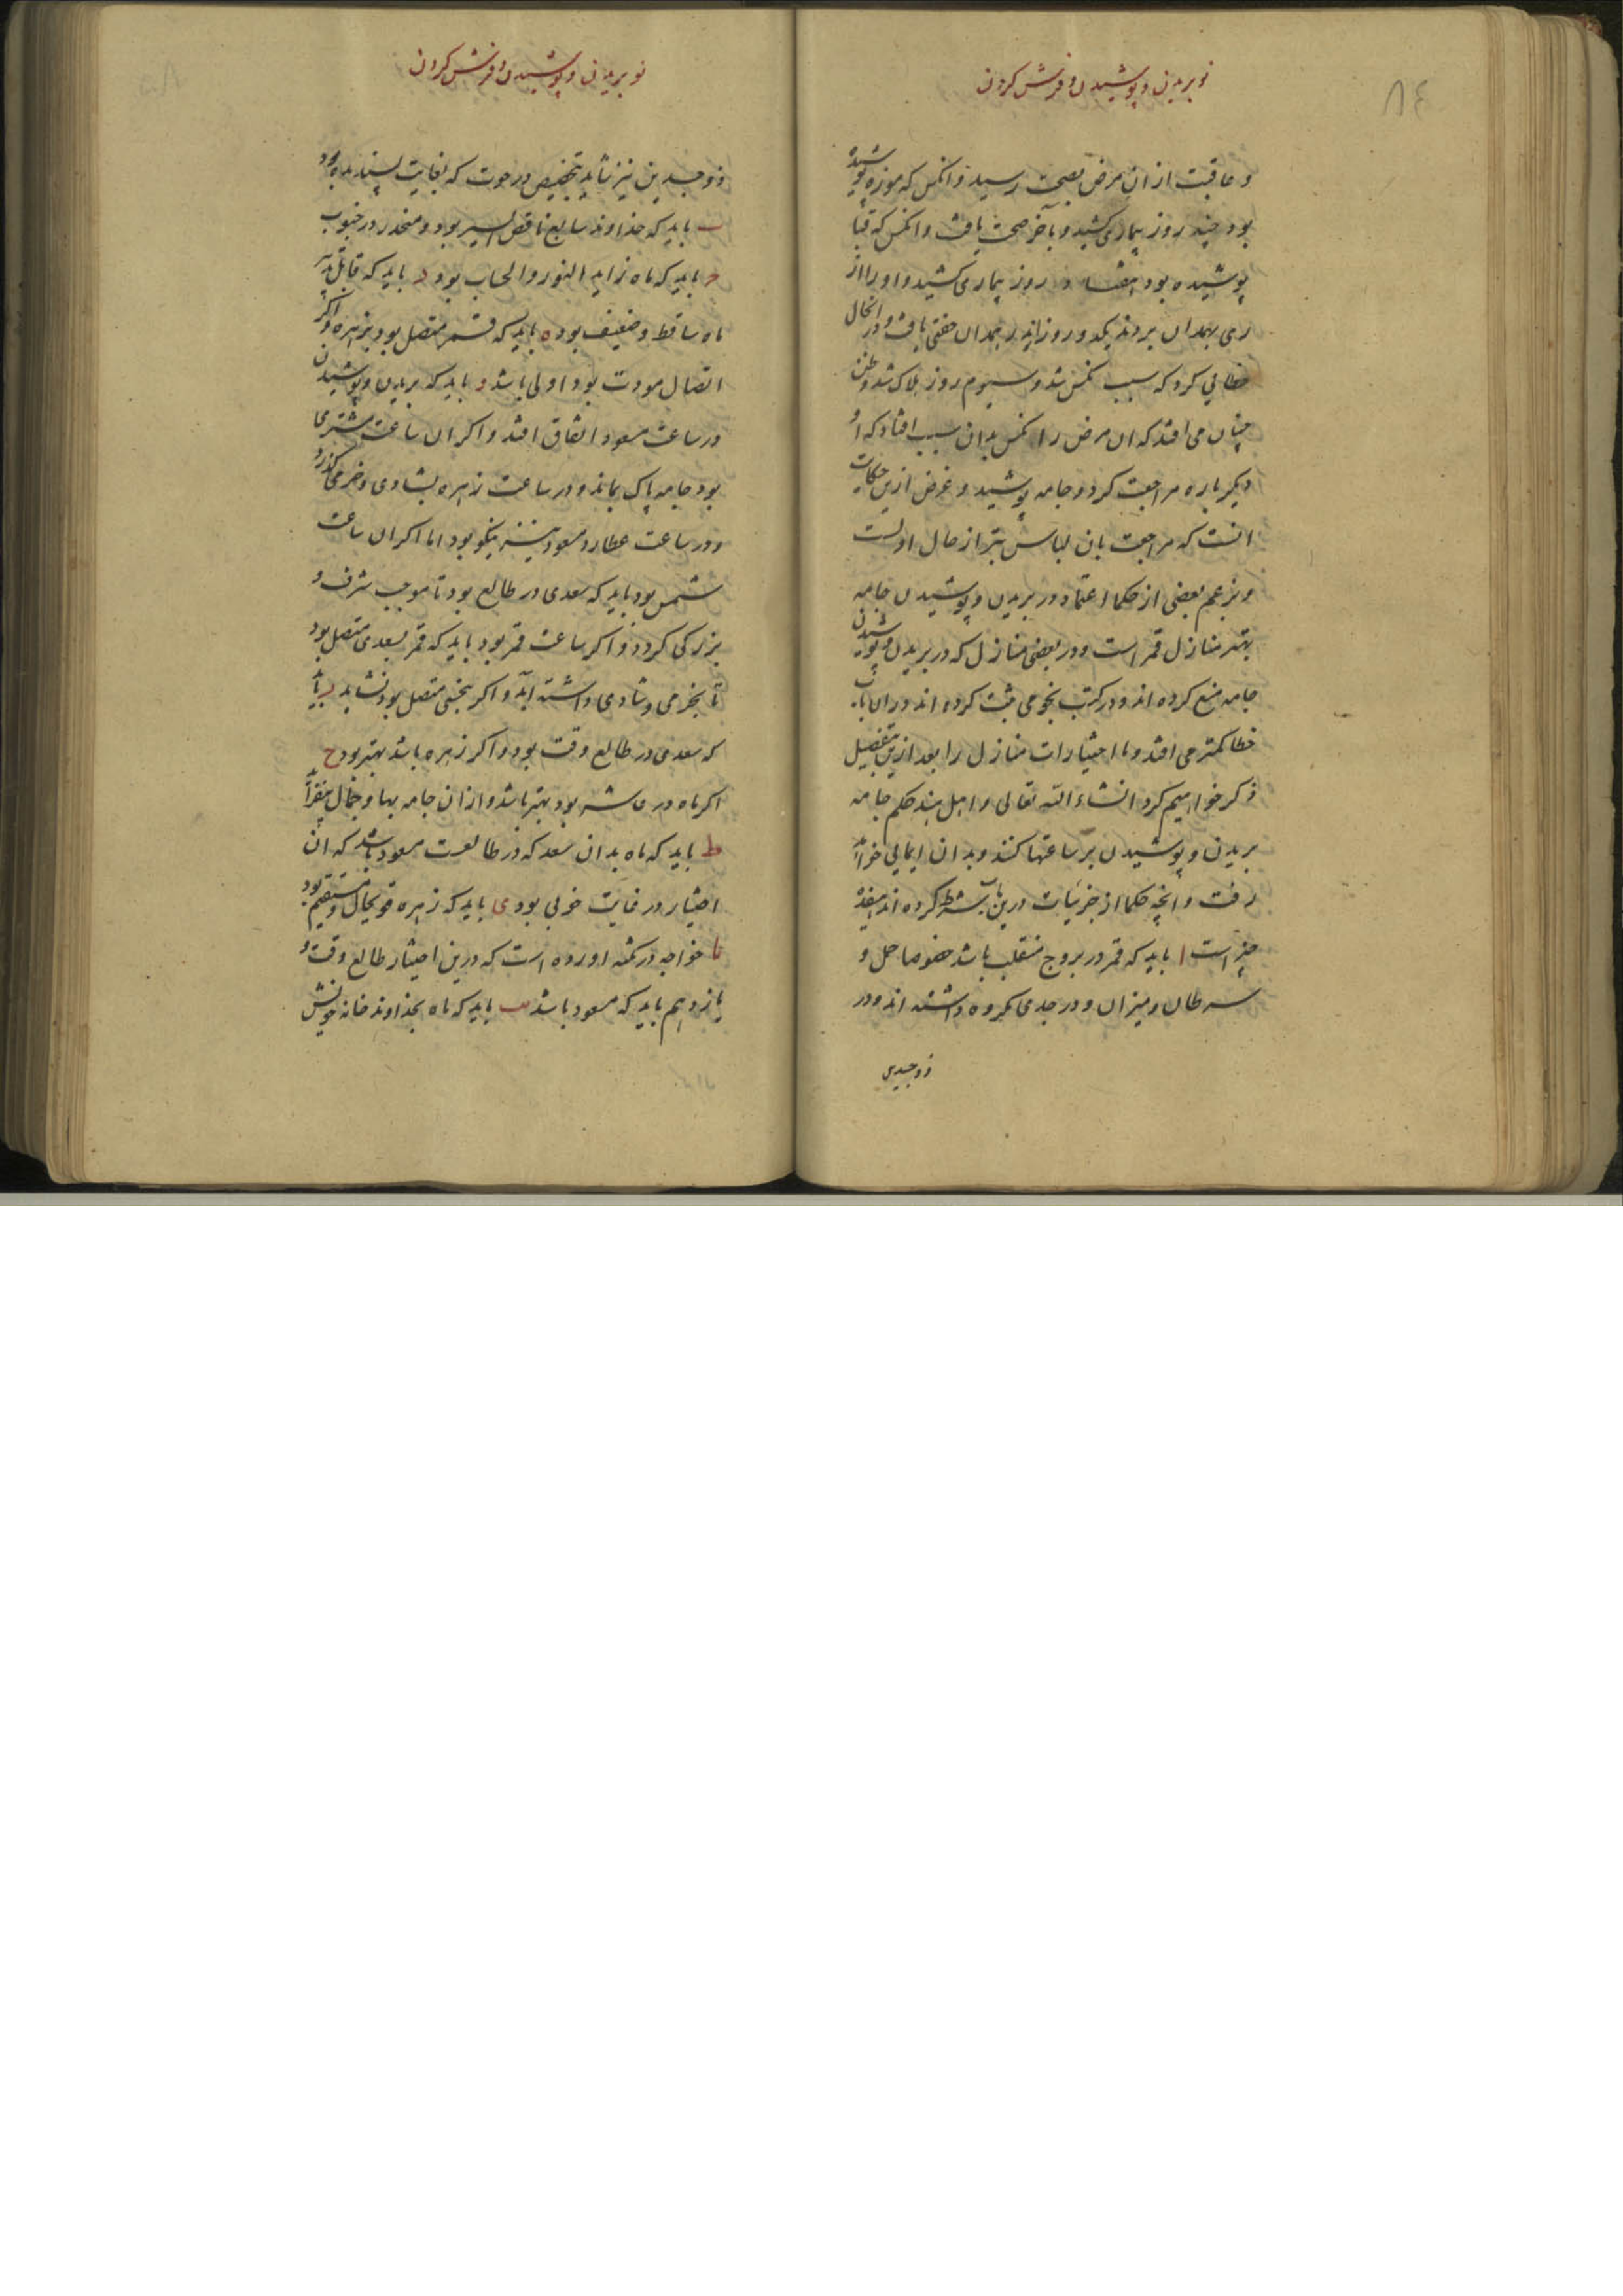 نو بریدن و پوشیدن و فرش کردن
٨٤
و عاقبت از ان مرض بصحت رسید و انکس که موزه پوشیده
بود چند روز بیماری کشید و بآخر صحت یافت و انکس که قبا
پوشیده بود هفتاد روز بیماری کشید و او را از
ری بهمدان بردند یکدو روز اندر همدان خفتی یافت و در انحال
خطائی کرد که سبب نکس شد و سیوم روز هلاک شد و ظن
چنان می افتد که ان مرض را نکس بدان سبب افتاد که او
دیکر باره مراجعت کرد و جامه پوشید و غرض ازین حکایت
انست که مراجعت بان لباس بتر از حال اولست
و بزعم بعضی از حکما اعتماد در بریدن و پوشیدن جامه
بهتر منازل قمر است و در بعضی منازل که در بریدن و پوشیدن
جامه منع کرده اند و در کتب نجومی ثبت کرده اند در ان باب
خطا کمتر می افتد و ما اختیارات منازل را بعد ازین بتفصیل
ذکر خواهیم کرد انشاء الله تعالی و اهل هند حکم جامه
بریدن و پوشیدن بر ساعتها کنند و بدان ایمائی خواهد
رفت و انچه حکما از جزئیات درین باب شرط کرده اند
چیز است ا باید که قمر در بروج منقلب باشد خصوصا حمل و
سرطان و میزان و در جدی مکروه داشته اند و در
ذوجسدین
نو بریدن و پوشیدن و فرش کردن
ذوجسدین نیز شاید بتخصیص در حوت که بغایت پسندیده بود
ب باید که خداوند سابع ناقص السیر بود و منحدر در جنوب
ج باید که ماه زاید النور و الحساب بود د باید که قابل تدبیر
ماه ساقط و ضعیف بود ه باید که قمر متصل بود بزهره و اکر
اتصال مودت بود اولی باشد و باید که بریدن و پوشیدن
در ساعت مسعود اتفاق افتد و اکر ان ساعت مشتری
بود جامه پاک بماند و در ساعت زهره بشادی و خرمی کذرد
و در ساعت عطارد مسعود نیز نیکو بود اما اکر ان ساعت
شمس بود باید که سعدی در طالع بود تا موجب شرف و
بزرکی کردد و اکر ساعت قمر بود باید که قمر بسعدی متصل بود
تا بخرمی و شادی داشته آید و اکر بنحسی متصل بود نشاید ز باید
که سعدی در طالع وقت بود و اکر زهره باشد بهتر بود ح
اکر ماه در عاشر بود بهتر باشد و از ان جامه بها و جمال بیفزاید
ط باید که ماه بدان سعد که در طالعست مسعود باشد که ان
اختیار در غایت خوبی بود ی باید که زهره قویحال و مستقیم بود
یا خواجه در تتمه اورده است که درین اختیار طالع وقت و
یازدهم باید که مسعود باشد یب باید که ماه بخداوند خانه خویش